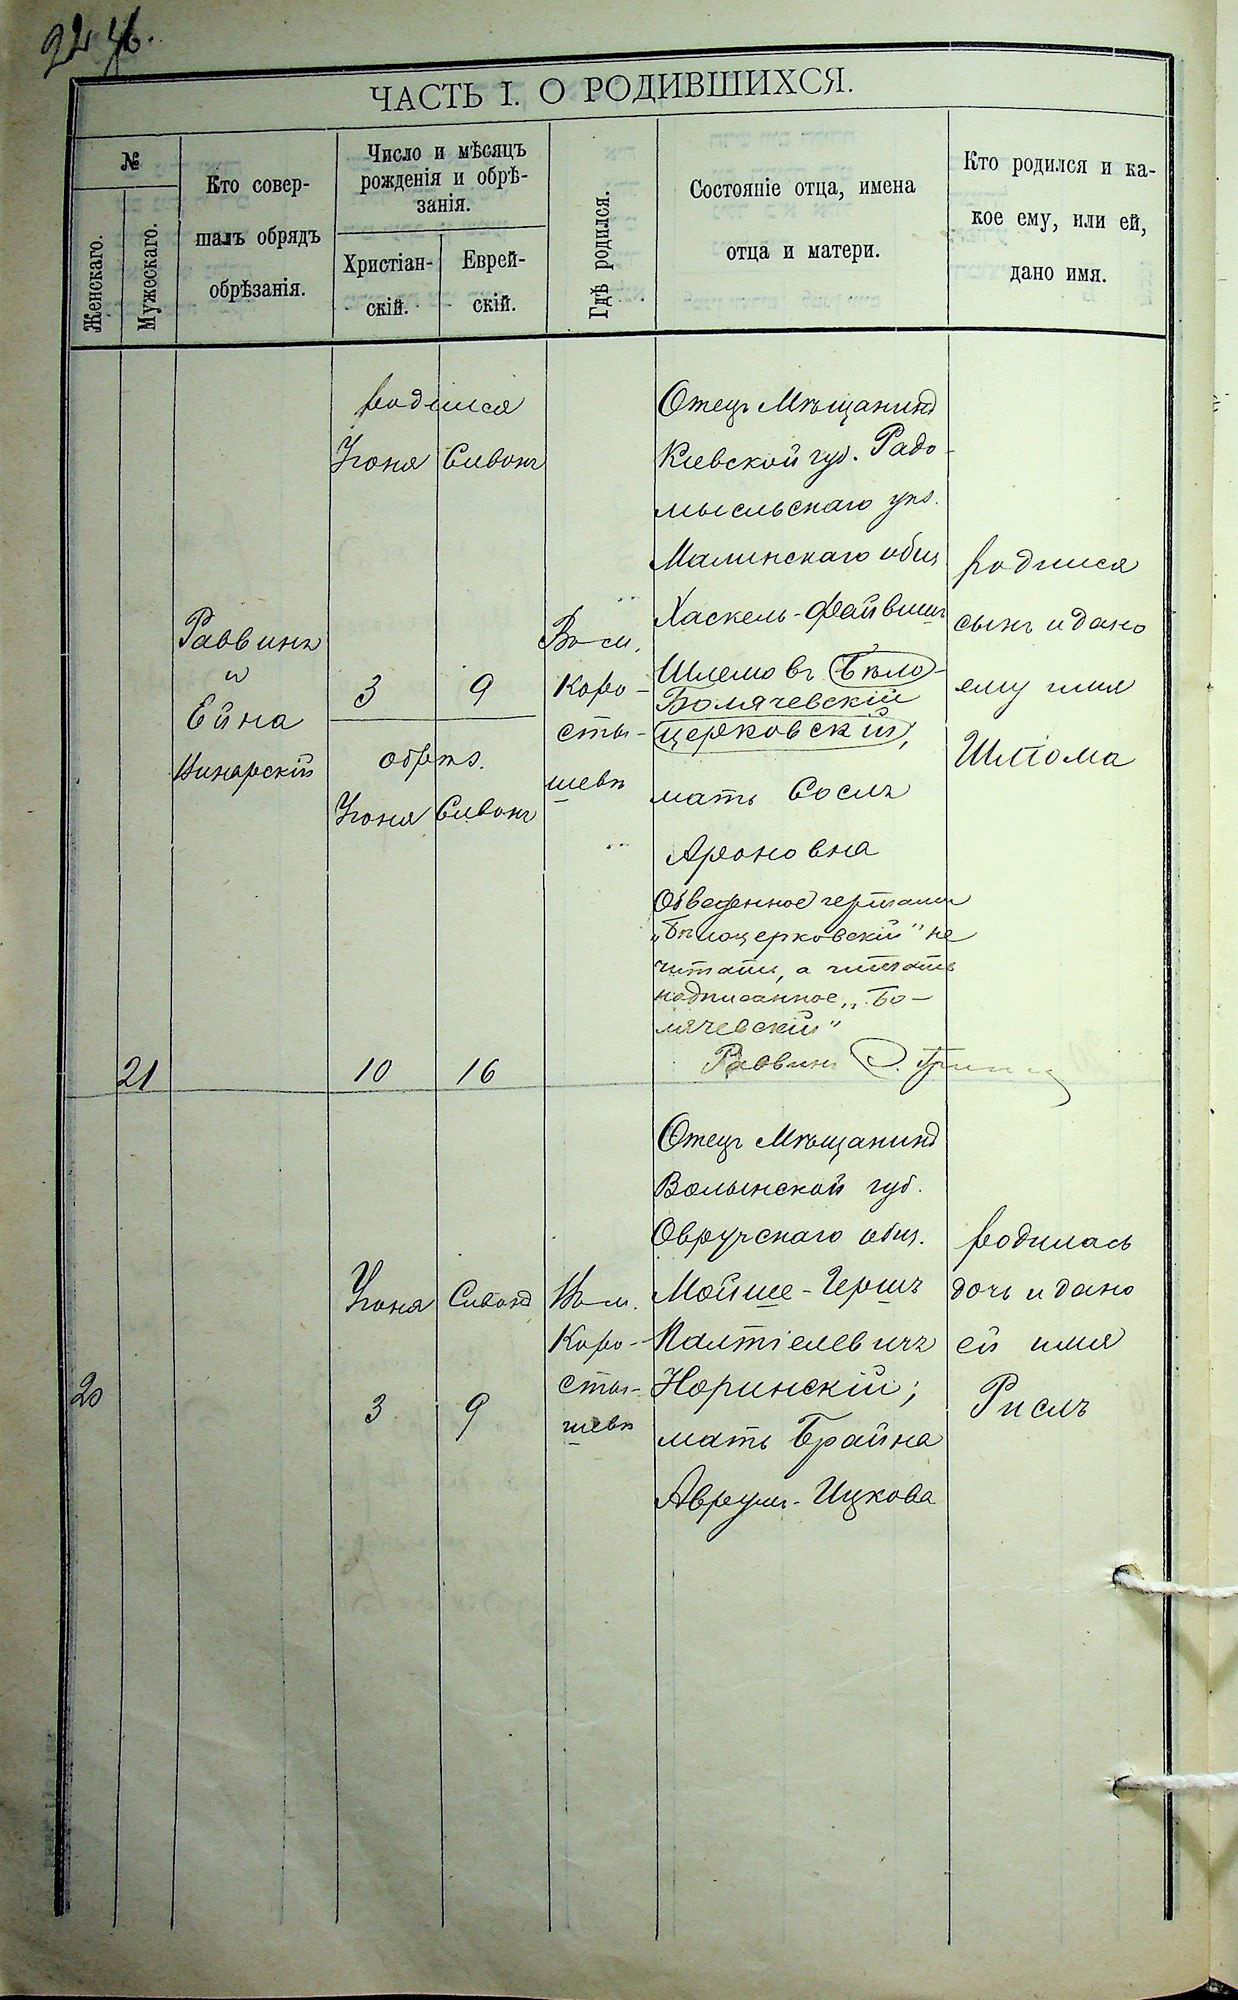 ЧАСТЬ I. О РОДИВШИХСЯ.
№
Женскаго.
Мужескаго.
Кто совер-
шалъ обрядъ
обрѣзанія.
Число и мѣсяцъ
рожденія и обрѣ-
занія.
Христіан-
скій.
Еврей-
скій.
Гдѣ родился.
Состояніе отца, имена
отца и матери.
Кто родился и ка-
кое ему, или ей,
дано имя.
21
Раввинъ
и
Ейна
Винарскій
родился
Іюня Сивонъ
3 9
обрѣз.
Іюня Сивонъ
10 16
Въ м.
Коро-
сты-
шевѣ
Отецъ Мѣщанинъ
Кіевской губ. Радо-
мысльскаго уѣз.
Малинскаго общ
Хаскель-Файвишъ
Шлемовъ Бѣло-
Бомячевскій
церковскій,
мать Сослъ
Ароновна
Обведенное чертами
„Бѣлоцерковскій" не
читать, а читать
надписанное „Бо-
мячевскій"
Раввинъ
родился
сынъ и дано
ему имя
Шлiома
20
Іюня Сивонъ
3 9
Въ м.
Коро-
сты-
шевѣ
Отецъ Мѣщанинъ
Волынской губ.
Овручскаго общ.
Мойше-Гершъ
Палтіелевичъ
Норинскій;
мать Брайна
Аврум-Ицкова
родилась
дочь и дано
ей имя
Рислъ